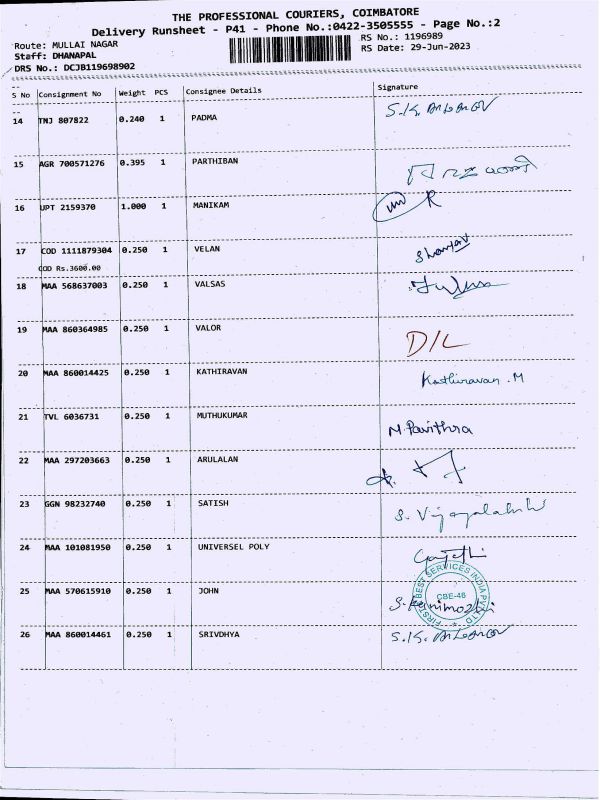 THE PROFESSIONAL COURIERS, COIMBATORE
Delivery Runsheet - P41 - Phone No.:0422-3505555 - Page No.:2
Route: MULLAI NAGAR RS No.: 1196989
Staff: DHANAPAL RS Date: 29-Jun-2023
DRS No.: DCJB119698902
S No Consignment No Weight PCS Consignee Details Signature
14 TNJ 807822 0.240 1 PADMA
15 AGR 700571276 0.395 1 PARTHIBAN
16 UPT 2159370 1.000 1 MANIKAM
17 COD 1111879304 0.250 1 VELAN
COD Rs.3600.00
18 MAA 568637003 0.250 1 VALSAS
19 MAA 860364985 0.250 1 VALOR D/L
20 MAA 860014425 0.250 1 KATHIRAVAN Kathiravan .M
21 TVL 6036731 0.250 1 MUTHUKUMAR M.Pavithra
22 MAA 297203663 0.250 1 ARULALAN
23 GGN 98232740 0.250 1 SATISH S. Vijayalakshi
24 MAA 101081950 0.250 1 UNIVERSEL POLY Gayathi
25 MAA 570615910 0.250 1 JOHN S.Kanimozhi
FIRST BEST SERVICES INDIA PVT LTD
CBE-46
26 MAA 860014461 0.250 1 SRIVDHYA